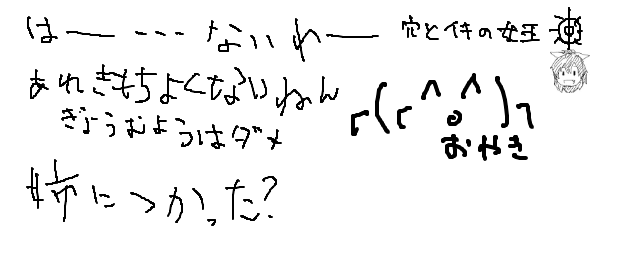 はー・・・ないわー
穴とイキの女王
あれきもちよくないねん
ぎょうむようはダメ
┌(┌^o^)┐
おやき
姉につかった?